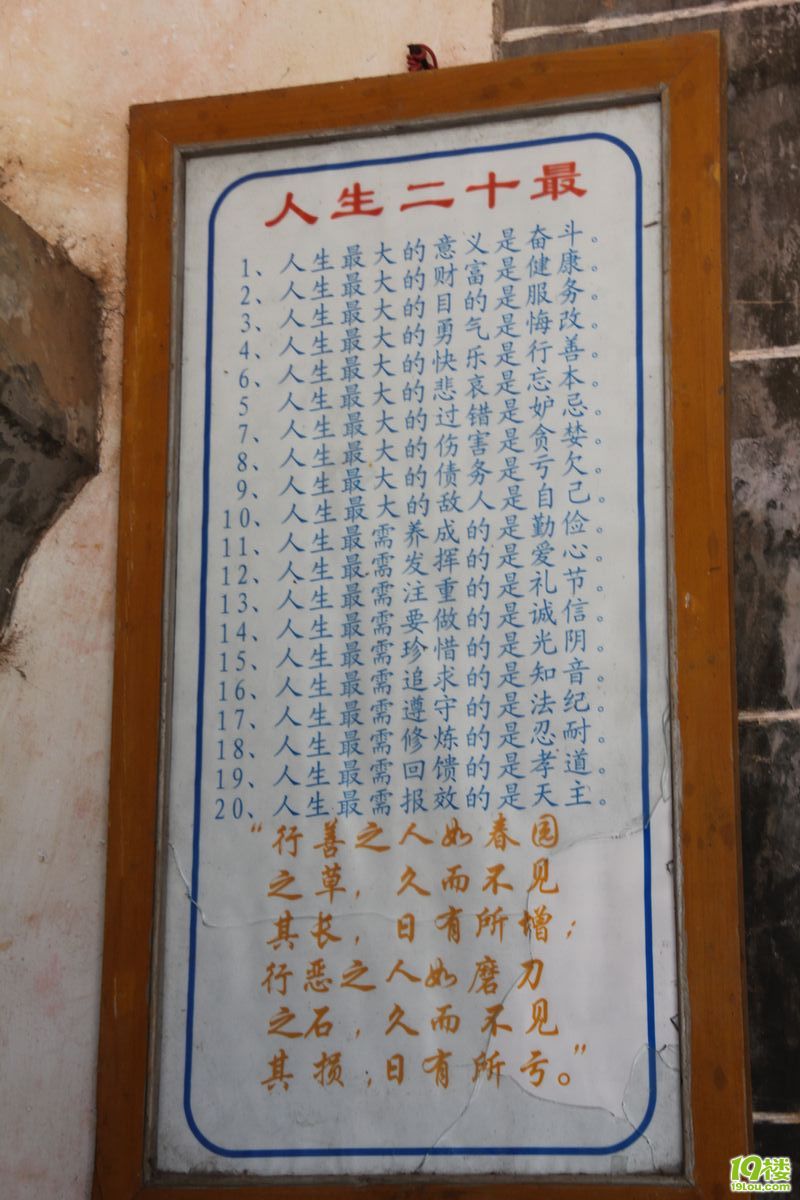 人生二十最
1、人生最大的意义是奋斗。
2、人生最大的财富是健康。
3、人生最大的目的是服务。
4、人生最大的勇气是悔改。
6、人生最大的快乐是行善。
5 人生最大的悲哀是忘本。
7、人生最大的过错是妒忌。
8、人生最大的伤害是贪婪。
9、人生最大的债务是亏欠。
10、人生最大的敌人是自己。
11、人生最需养成的是勤俭。
12、人生最需发挥的是爱心。
13、人生最需注重的是礼节。
14、人生最需要做的是诚信。
15、人生最需珍惜的是光阴。
16、人生最需追求的是知音。
17、人生最需遵守的是法纪。
18、人生最需修炼的是忍耐。
19、人生最需回馈的是孝道。
20、人生最需报效的是天主。
“行善之人如春园
之草，久而不见
其长，日有所增；
行恶之人如磨刀
之石，久而不见
其损；日有所亏。”
19楼
19lou.com